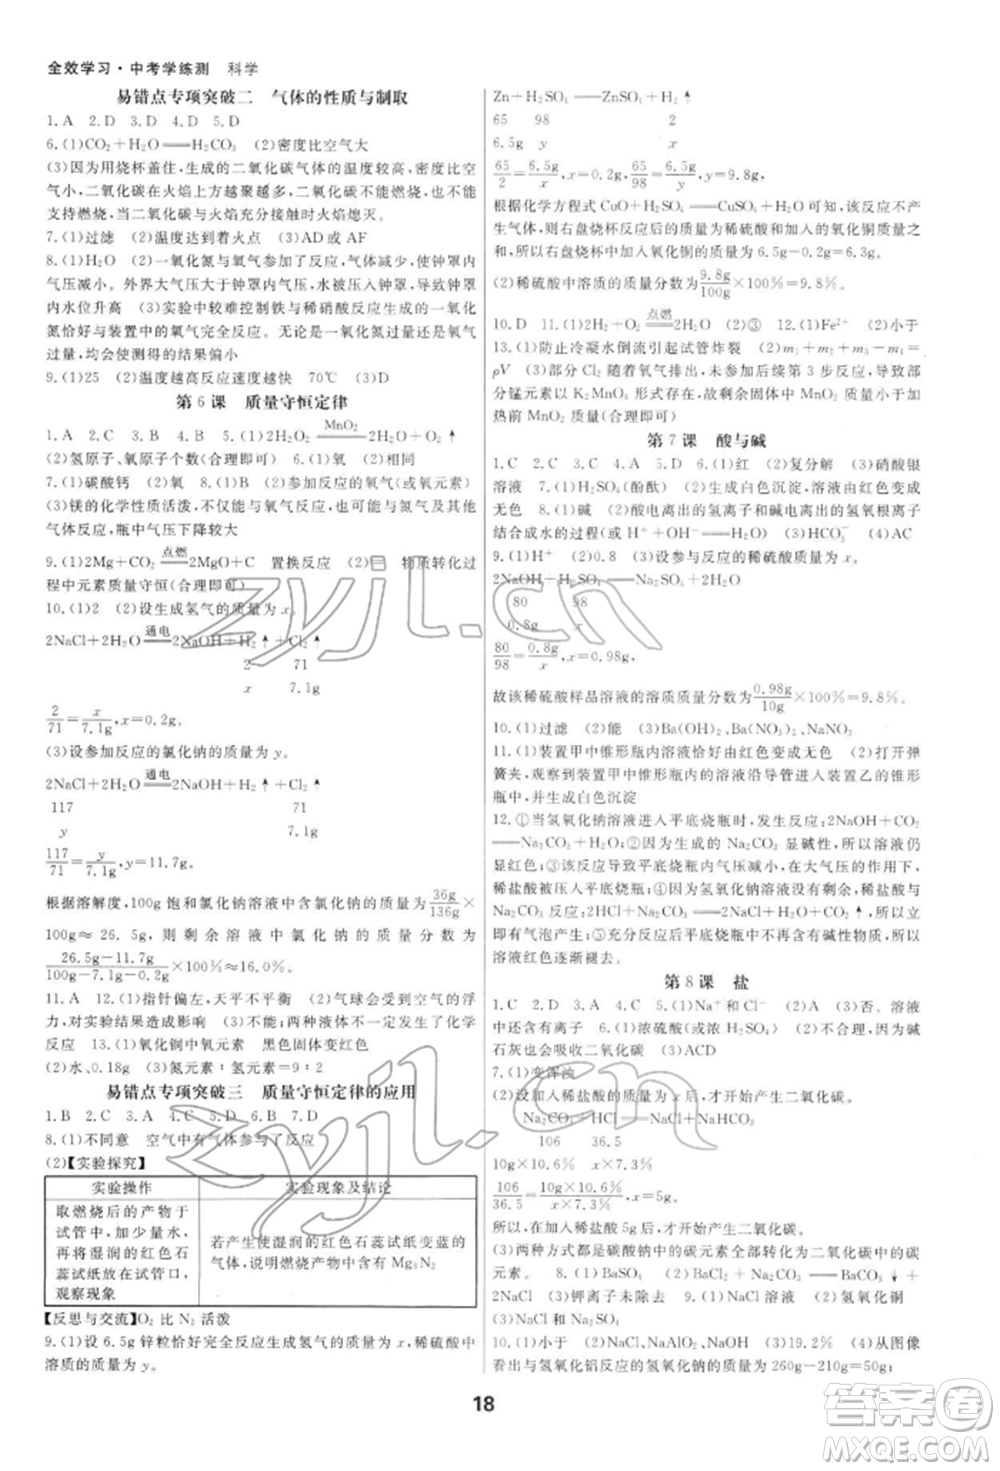 全效学习·中考学练测 科学
易错点专项突破二 气体的性质与制取
1.A 2.D 3.D 4.D 5.D
6.(1)CO₂+H₂O══H₂CO₃ (2)密度比空气大
(3)因为用烧杯盖住,生成的二氧化碳气体的温度较高,密度比空
气小,二氧化碳在火焰上方越聚越多,二氧化碳不能燃烧,也不能
支持燃烧,当二氧化碳与火焰充分接触时火焰熄灭。
7.(1)过滤 (2)温度达到着火点 (3)AD或AF
8.(1)H₂O (2)一氧化氮与氧气参加了反应,使钟罩内气体减少,
气压减小。外界大气压大于钟罩内气压,水被压入钟罩,使钟罩内
水面上升 (3)实验中较难控制铁与稀硝酸反应生成的一氧化
氮恰好与装置中的氧气完全反应。无论是一氧化氮过量还是氧气
过量,均会使测得的结果偏小
9.(1)25 (2)温度越高反应速度越快 70℃ (3)D
第6课 质量守恒定律
1.A 2.C 3.B 4.B 5.(1)2H₂O₂ ══MnO₂ 2H₂O+O₂↑
(2)氢原子、氧原子个数(合理即可) 6.(1)氧 (2)相同
7.(1)碳酸钙 (2)氧 8.(1)B (2)参加反应的氧气(或氧元素)
(3)镁的化学性质活泼,不仅能与氧气反应,也可能与氮气及其他
气体反应,瓶中气压下降较大
9.(1)2Mg+CO₂ ══点燃 2MgO+C 置换反应 (2)二 物质转化过
程中元素质量守恒(合理即可)
10.(1)2 (2)设生成氢气的质量为x。
2NaCl+2H₂O ══通电 2NaOH+H₂↑+Cl₂↑
2 71
x 7.1g
2/71=x/7.1g,x=0.2g。
(3)设参加反应的氯化钠的质量为y。
2NaCl+2H₂O ══通电 2NaOH+H₂↑+Cl₂↑
117 71
y 7.1g
117/71=y/7.1g,y=11.7g。
根据溶解度,100g饱和氯化钠溶液中含氯化钠的质量为36g/136g×
100g≈26.5g,则剩余溶液中氯化钠的质量分数为
(26.5g-11.7g)/(100g-7.1g-0.2g)×100%≈16.0%。
11.A 12.(1)指针偏左,天平不平衡 (2)气球会受到空气的浮
力,对实验结果造成影响 (3)能;两种液体不会相互发生化学
反应 13.(1)氧化铜中氧元素 黑色固体变红色
(2)水、0.18g (3)氮元素:氢元素=9:2
易错点专项突破三 质量守恒定律的应用
1.B 2.C 3.A 4.C 5.D 6.B 7.D
8.(1)不同意 空气中有气体参与了反应
(2)【实验探究】
实验操作 实验现象及结论
取燃烧后的产物于
试管中,加少量水,
再将湿润的红色石
蕊试纸放在试管口,
观察现象
若产生使湿润的红色石蕊试纸变蓝的
气体,说明燃烧产物中有Mg₃N₂
【反思与交流】O₂比N₂活泼
9.(1)设6.5g锌粒恰好完全反应生成氢气的质量为x,稀硫酸中
溶质的质量为y。
Zn+H₂SO₄══ZnSO₄+H₂↑
65 98 2
6.5g y x
65/2=6.5g/x,65/98=6.5g/y,y=9.8g,
根据化学方程式CuO+H₂SO₄══CuSO₄+H₂O可知,该反应不产
生气体,所以右盘烧杯中加入氧化铜的质量与加入的氧化铜质量
相等,所以右盘烧杯中加入氧化铜的质量为6.5g-0.2g=6.3g。
(2)稀硫酸中溶质的质量分数为9.8g/100g×100%=9.8%。
10.D 11.(1)2H₂+O₂ ══点燃 2H₂O (2)③ 12.(1)Fe²⁺ (2)小于
13.(1)防止冷凝水倒流引起试管炸裂 (2)m₁+m₂=m₃+m₄+
ρV (3)部分Cl₂随着氧气排出,未参与后续第3步反应,造成部
分锰元素以K₂MnO₄形式存在,故剩余固体中MnO₂质量小于加
热前MnO₂质量(合理即可)
第7课 酸与碱
1.C 2.D 3.C 4.D 5.A 6.(1)红 (2)复分解 (3)硝酸银
溶液 7.(1)H₂SO₄(酚酞) (2)生成白色沉淀,溶液由红色变成
无色 8.(1)碱 (2)酸电离出的氢离子和碱电离出的氢氧根离子
结合成水的过程(或H⁺+OH⁻══H₂O) (3)HCO₃⁻ (4)AC
9.(1)H⁺ (2)0.8 (3)设参与反应的稀硫酸质量为x。
2NaOH+H₂SO₄══Na₂SO₄+2H₂O
80 98
0.8g x
80/98=0.8g/x,x=0.98g,
故该稀硫酸样品溶液的溶质质量分数为0.98g/10g×100%=9.8%。
10.(1)过滤 (2)能 (3)Ba(OH)₂、Ba(NO₃)₂、NaNO₃
11.(1)装置甲中锥形瓶内溶液恰好由红色变成无色 (2)打开弹
簧夹,观察到装置甲中锥形瓶内的溶液沿导管进入装置乙的锥形
瓶中,并产生白色沉淀
12.①当氢氧化钠溶液进入平底烧瓶时,发生反应:2NaOH+CO₂
══Na₂CO₃+H₂O;②因为生成的Na₂CO₃显碱性,所以溶液仍
显红色;③该反应导致平底烧瓶内气压减小,在大气压的作用下,
稀盐酸进入平底烧瓶;④因为氢氧化钠没有剩余,所以稀盐酸与
Na₂CO₃反应:2HCl+Na₂CO₃══2NaCl+H₂O+CO₂↑,所以立
即有气泡产生;⑤充分反应后平底烧瓶中溶液呈中性,所以溶液
红色逐渐褪去。
第8课 盐
1.C 2.D 3.C 4.C 5.(1)Na⁺和Cl⁻ (2)A (3)否。溶液
中还存在着分子 6.(1)浓硫酸(或浓H₂SO₄) (2)不合理,因为碱
石灰也会吸收二氧化碳 (3)ACD
7.(1)变浑浊
(2)设加入稀盐酸质量为x后,才开始产生二氧化碳。
Na₂CO₃+HCl══NaCl+NaHCO₃
106 36.5
10g×10.6% x×7.3%
106/36.5=(10g×10.6%)/(x×7.3%),x=5g。
所以,在加入稀盐酸5g后,才开始产生二氧化碳。
(3)两种方式都是碳酸钠中的碳元素全部转化为二氧化碳中的碳
元素。 8.(1)BaSO₄ (2)Na₂CO₃+BaCl₂══BaCO₃↓+
2NaCl (3)钾离子不来自原溶液 9.(1)B (2)氢氧化钠
(3)NaCl和NaOH
10.(1)小于 (2)NaCl、NaAlO₂、NaOH (3)19.2% (4)从图像
看出与氢氧化铝反应的氢氧化钠的质量为260g-210g=50g;
18
zyjl.cn
zyjl.cn
答案圈
MXQE.COM